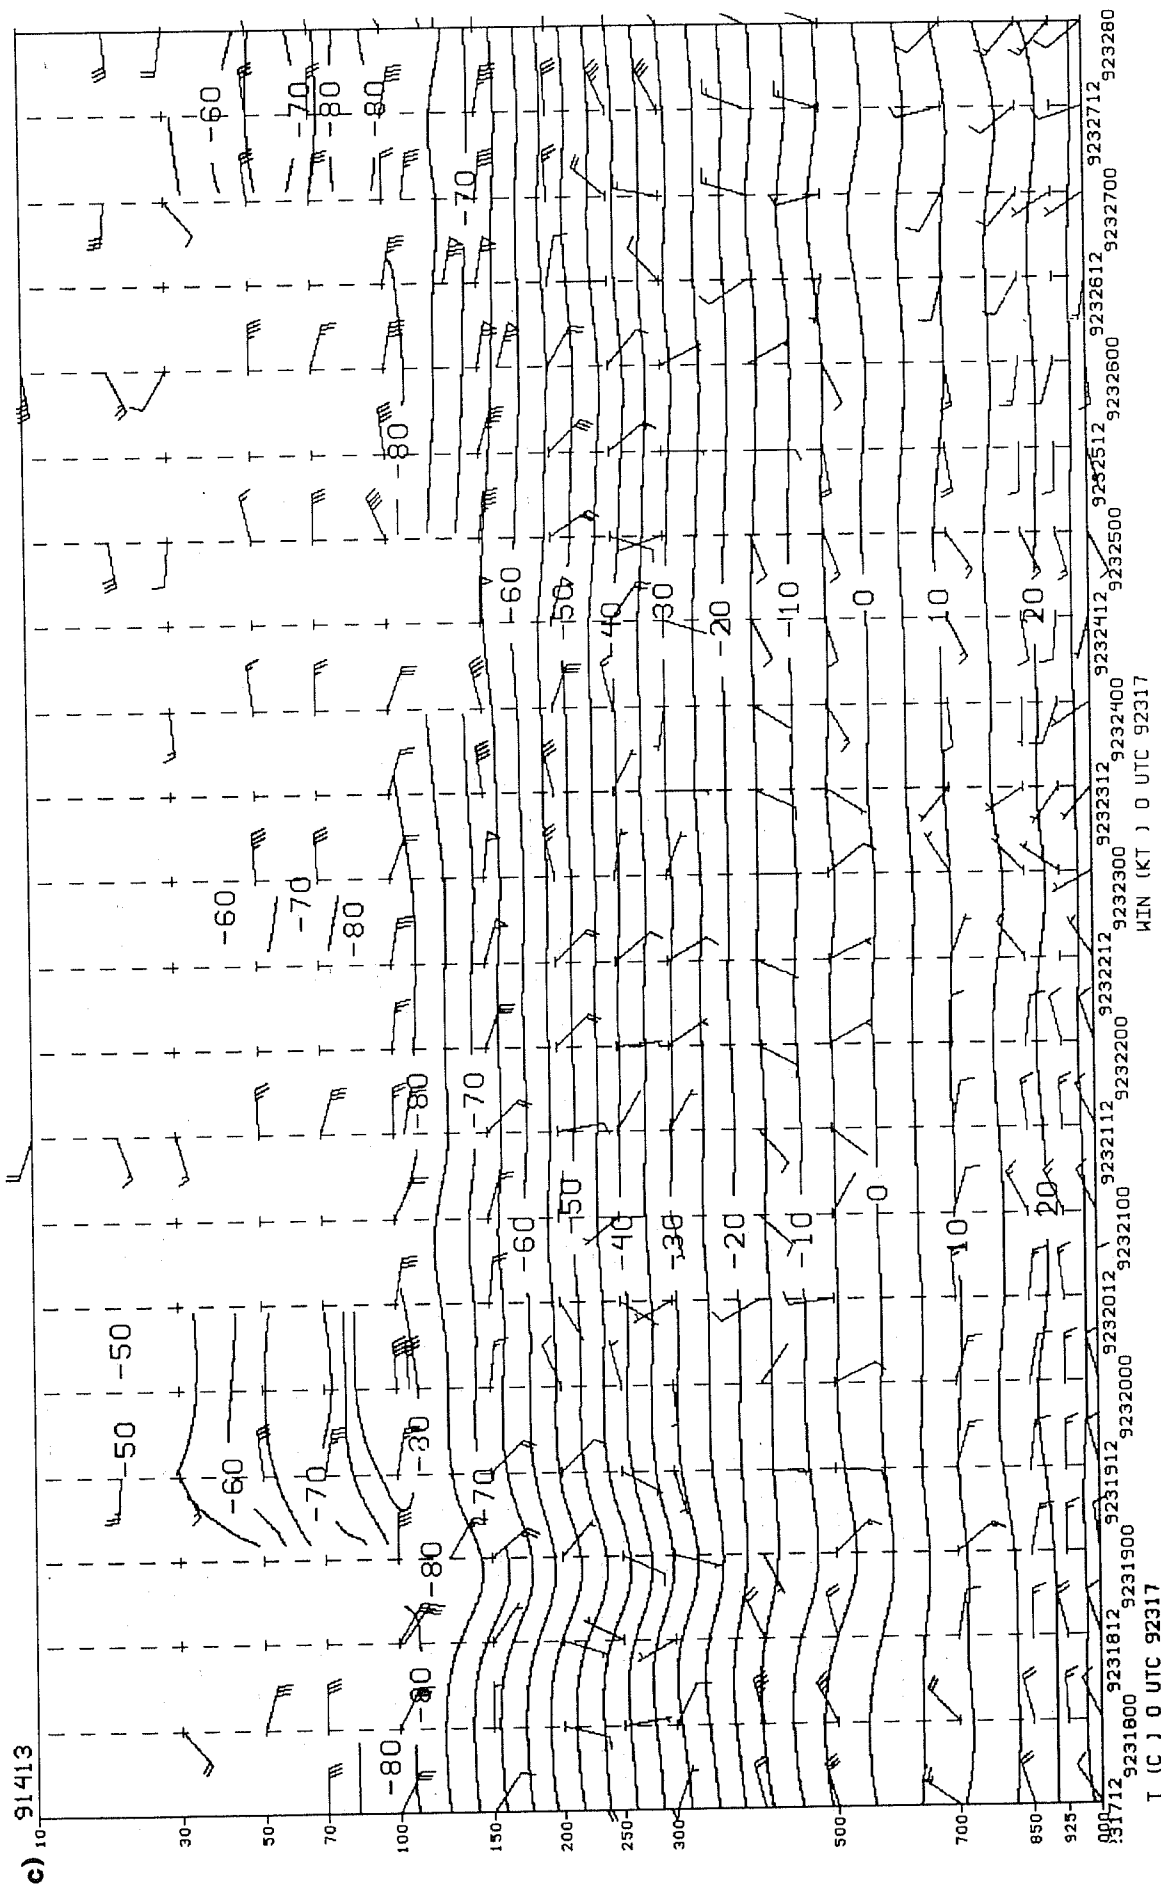 c)
91413
10
30
50
70
100
150
200
250
300
500
700
850
925
-50
-50
-60
-70
-80
-80
-80
-80
-80
-70
-60
-50
-40
-30
-20
-10
0
10
20
-80
-70
-60
-70
-80
-60
-50
-40
-30
-20
-10
0
10
20
-80
-70
-60
-70
-80
-80
9231800
9231812
9231900
9231912
9232000
9232012
9232100
9232112
9232200
9232212
9232300
9232312
9232400
9232412
9232500
9232512
9232600
9232612
9232700
9232712
923280
T (C ) 0 UTC 92317
WIN (KT ) 0 UTC 92317